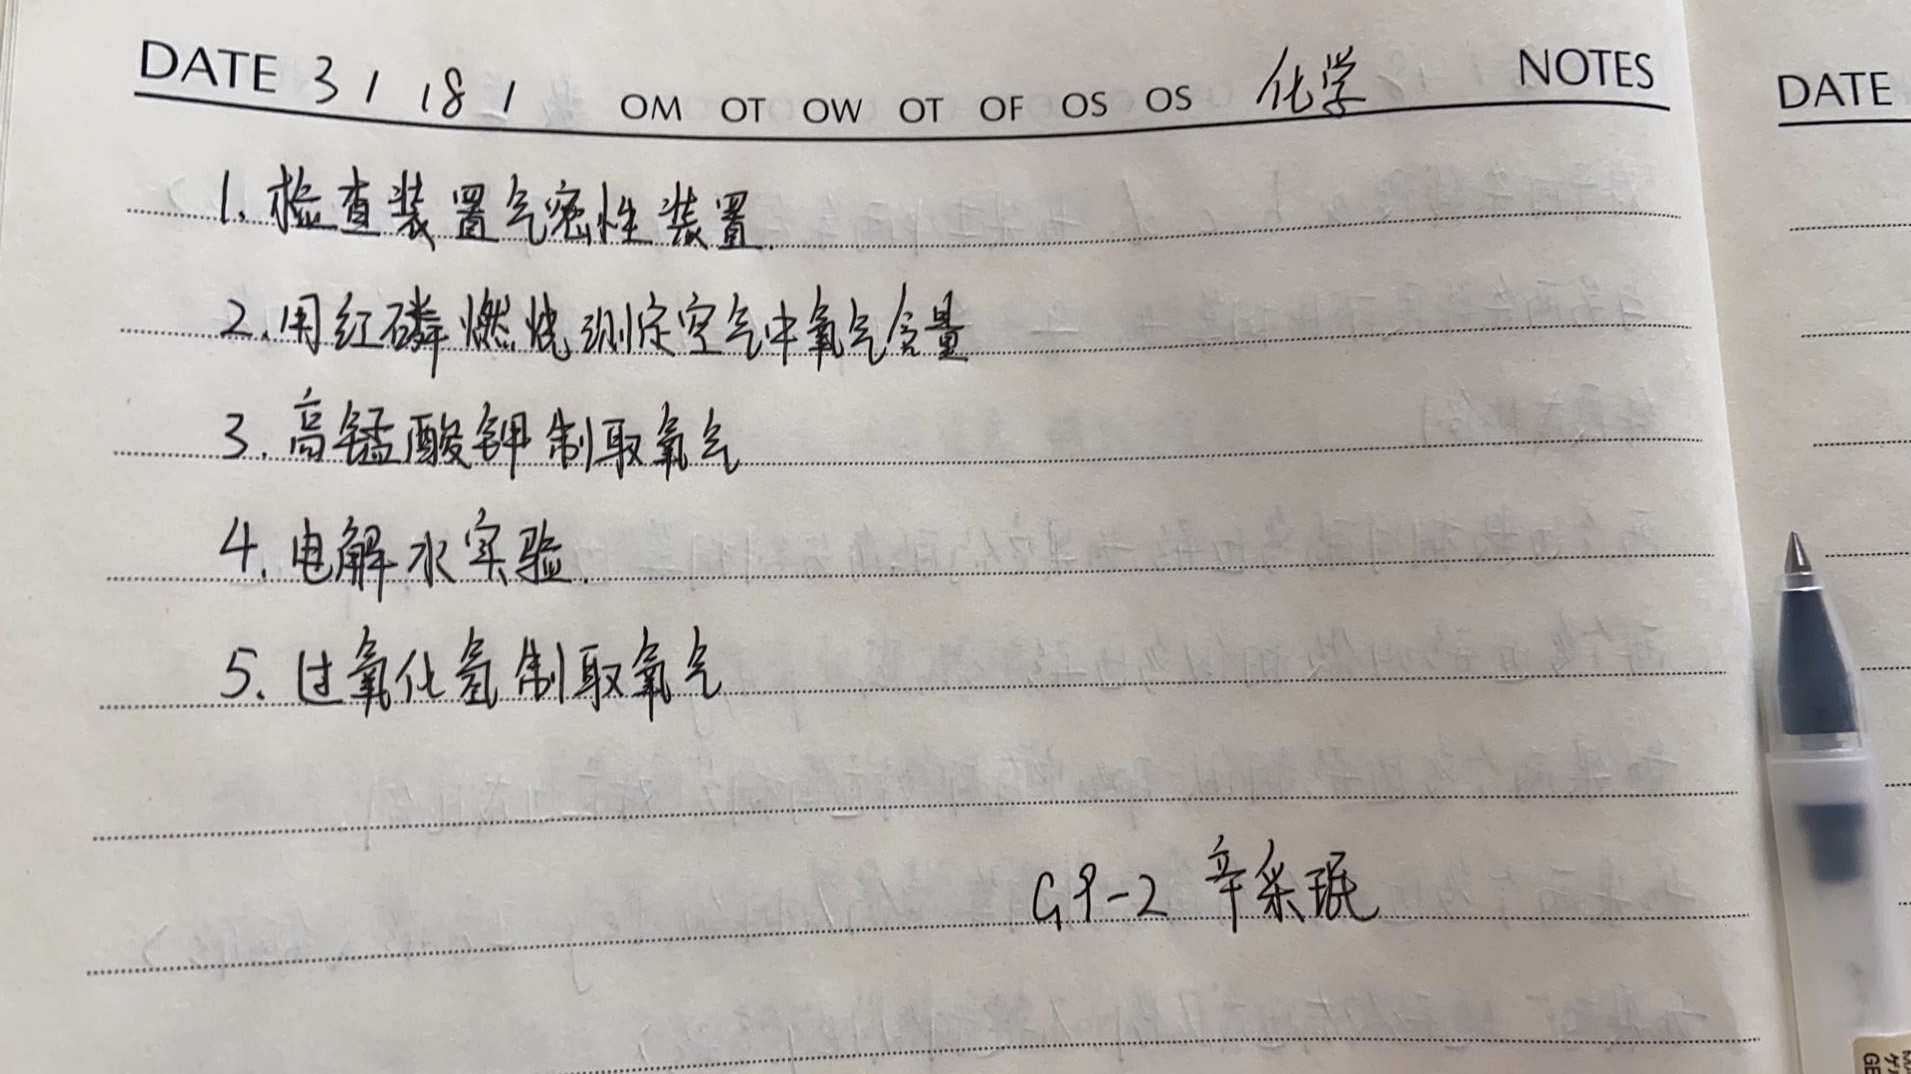 DATE 3 / 18 / OM OT OW OT OF OS OS 化学 NOTES
1. 检查装置气密性装置.
2. 用红磷燃烧测定空气中氧气含量
3. 高锰酸钾制取氧气
4. 电解水实验.
5. 过氧化氢制取氧气
G9-2 辛采珉
DATE